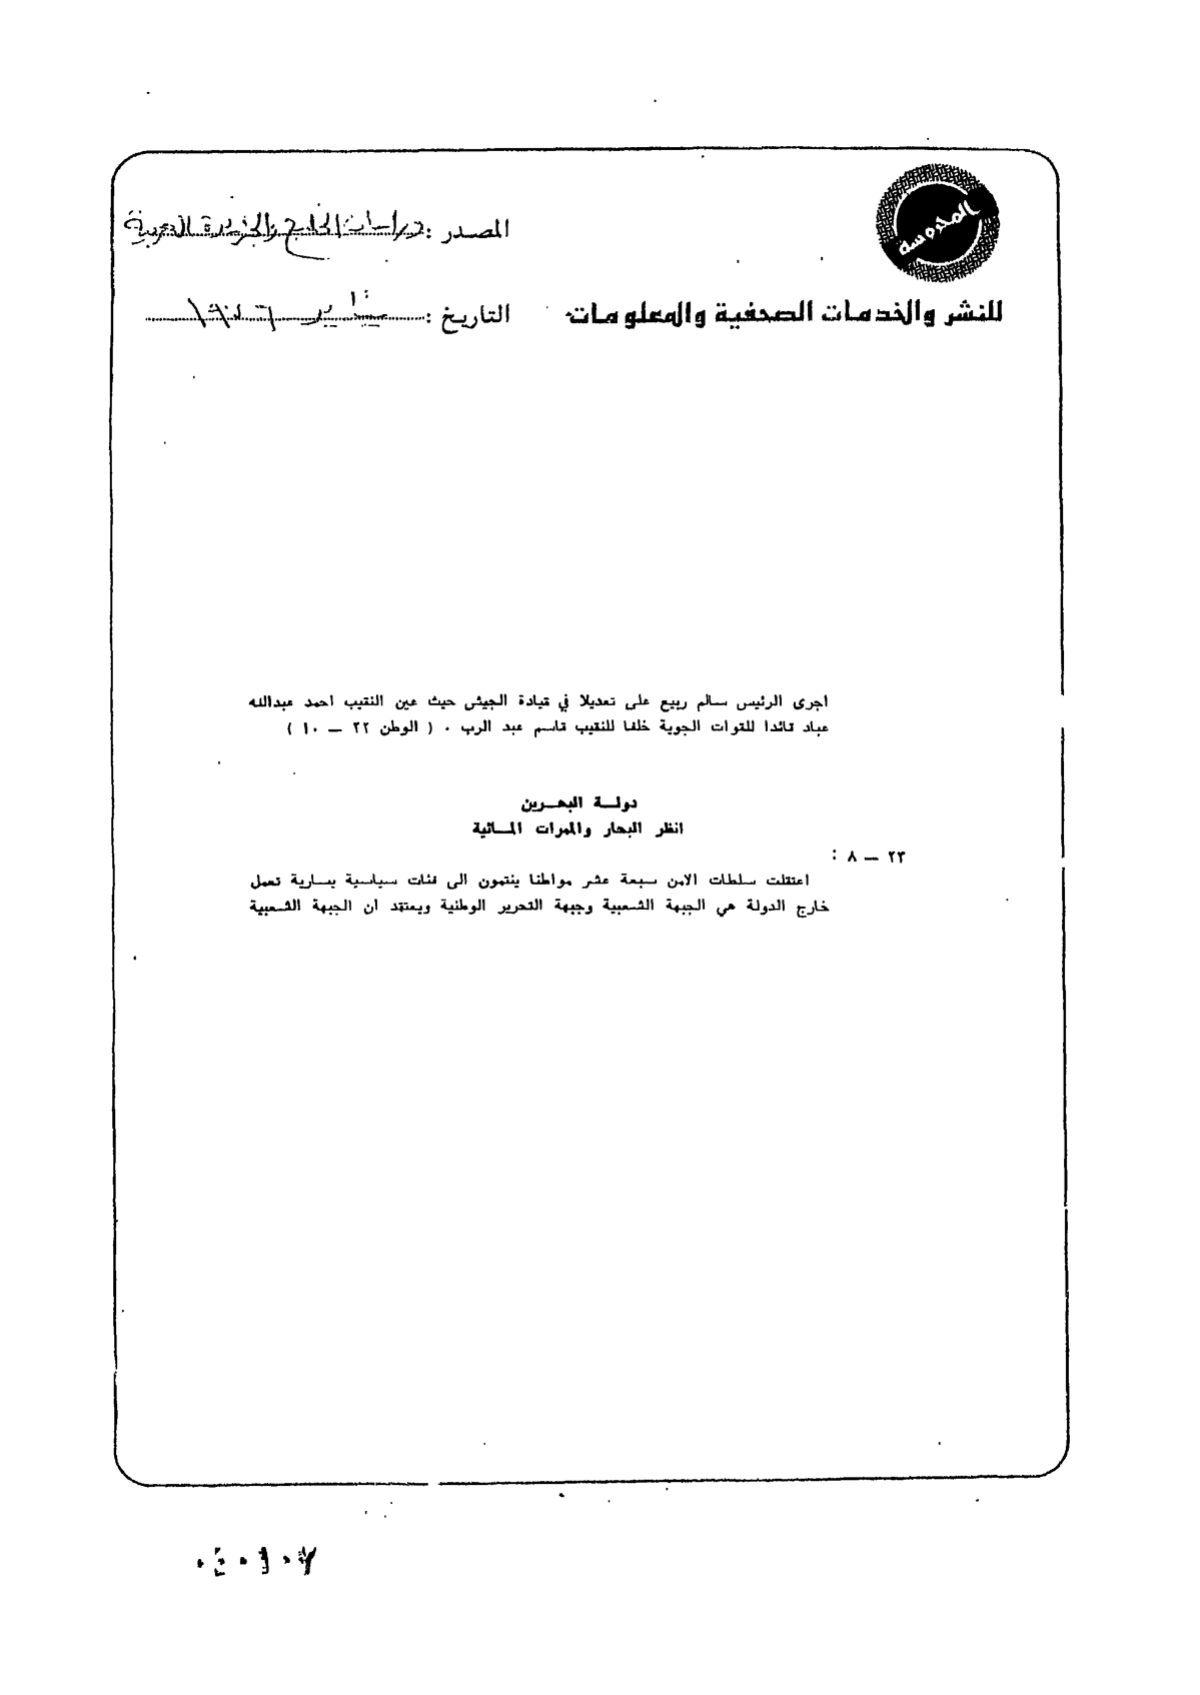 المحروسة
المصدر : دراسات الخليج والجزيرة العربية
للنشر والخدمات الصحفية والمعلومات
التاريخ : يناير ١٩٧٦
اجرى الرئيس سالم ربيع على تعديلا في قيادة الجيش حيث عين النقيب احمد عبدالله
عباد قائدا للقوات الجوية خلفا للنقيب قاسم عبد الرب . ( الوطن ٢٢ — ١٠ )
دولة البحرين
انظر البحار والممرات المائية
٢٣ — ٨ :
اعتقلت سلطات الامن سبعة عشر مواطنا ينتمون الى فئات سياسية يسارية تعمل
خارج الدولة هي الجبهة الشعبية وجبهة التحرير الوطنية ويعتقد ان الجبهة الشعبية